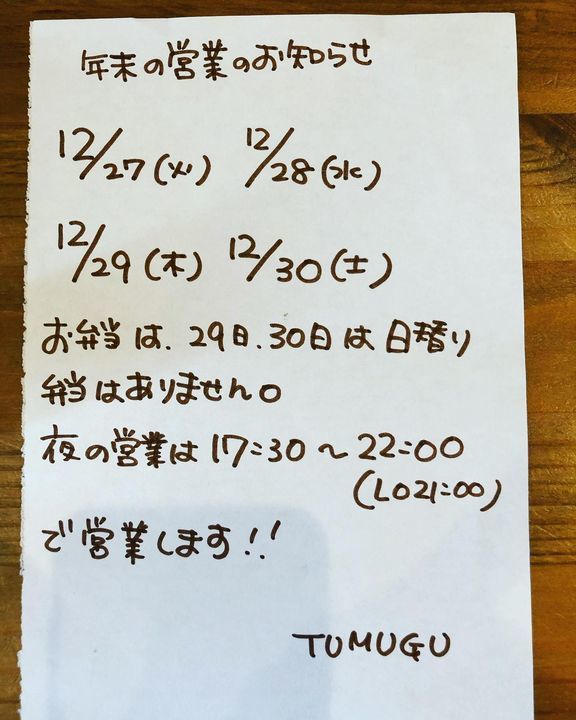 年末の営業のお知らせ
12/27(火) 12/28(水)
12/29(木) 12/30(土)
お弁当は、29日、30日は日替り
弁当はありません。
夜の営業は17:30〜22:00
(LO21:00)
で営業します!!
TUMUGU